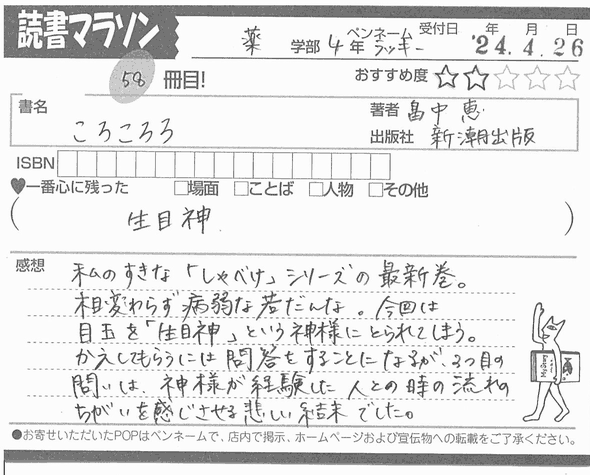 読書マラソン
薬 学部 4 年 ペンネーム ラッキー 受付日 '24 年 4 月 26 日
58 冊目! おすすめ度 ★★☆☆☆
書名 ころころろ
著者 畠中 恵
出版社 新潮出版
ISBN
♥一番心に残った □場面 □ことば □人物 □その他
( 生目神 )
感想
私のすきな「しゃべけ」シリーズの最新巻。
相変わらず病弱な若だんな。今回は
目玉を「生目神」という神様にとられてしまう。
かえしてもらうには問答をすることになるが、3つ目の
問いは、神様が経験した人との時の流れの
ちがいを感じさせる悲しい結末でした。
●お寄せいただいたPOPはペンネームで、店内で掲示、ホームページおよび宣伝物への転載をご了承ください。